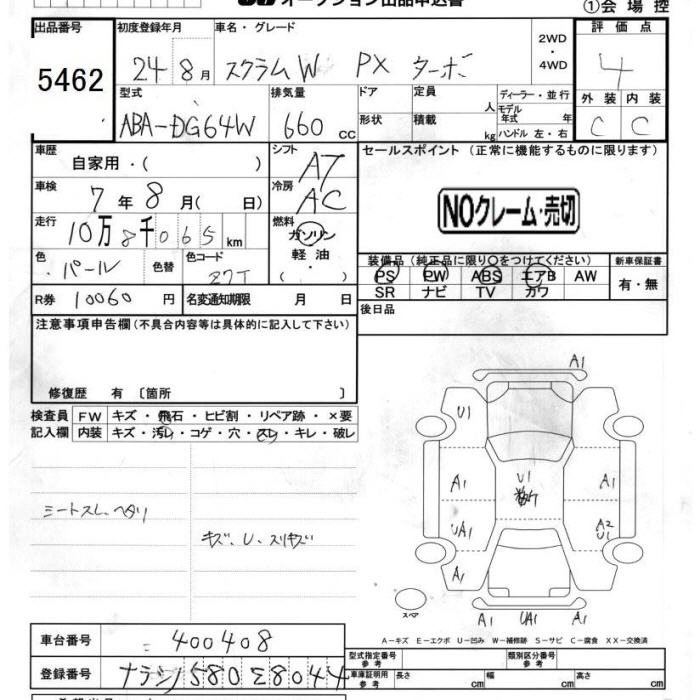 オークション出品申込書
①会場控
出品番号 5462
初度登録年月 24年8月
車名・グレード スクラムW PX ターボ
2WD ・ 4WD
評価点 4
外装 C 内装 C
型式 ABA-DG64W
排気量 660 cc
ドア 形状
定員 人
積載 kg
ディーラー・並行
モデル年式 年
ハンドル 左・右
車歴 自家用・( )
シフト AT
車検 7年8月( 日)
冷房 AC
走行 10万8千065km
燃料 ガソリン 軽油 ・( )
色 パール 色替
色コード Z7T
R券 10060 円
名変通知期限 月 日
セールスポイント (正常に機能するものに限ります)
NOクレーム・売切
装備品(純正品に限り○をつけてください)
PS PW ABS エアB AW
SR ナビ TV カワ
新車保証書 有・無
後日品
注意事項申告欄(不具合内容等は具体的に記入して下さい)
修復歴 有〔箇所 〕
検査員記入欄
FW キズ・飛石・ヒビ割・リペア跡・×要
内装 キズ・汚レ・コゲ・穴・スレ・キレ・破レ
シートスレ、ヘタリ
キズ、U、スリキズ
A1
U1
A1
UA1
A1
U1
A1
A2
U1
スペア
A1 UA1 A1
A-キズ E-エクボ U-凹み W-補修跡 S-サビ C-腐食 XX-交換済
車台番号 400408
登録番号 ナラシ580 8044
型式指定番号 参考
類別区分番号 参考
車庫証明用 参考
長さ cm 幅 cm 高さ cm